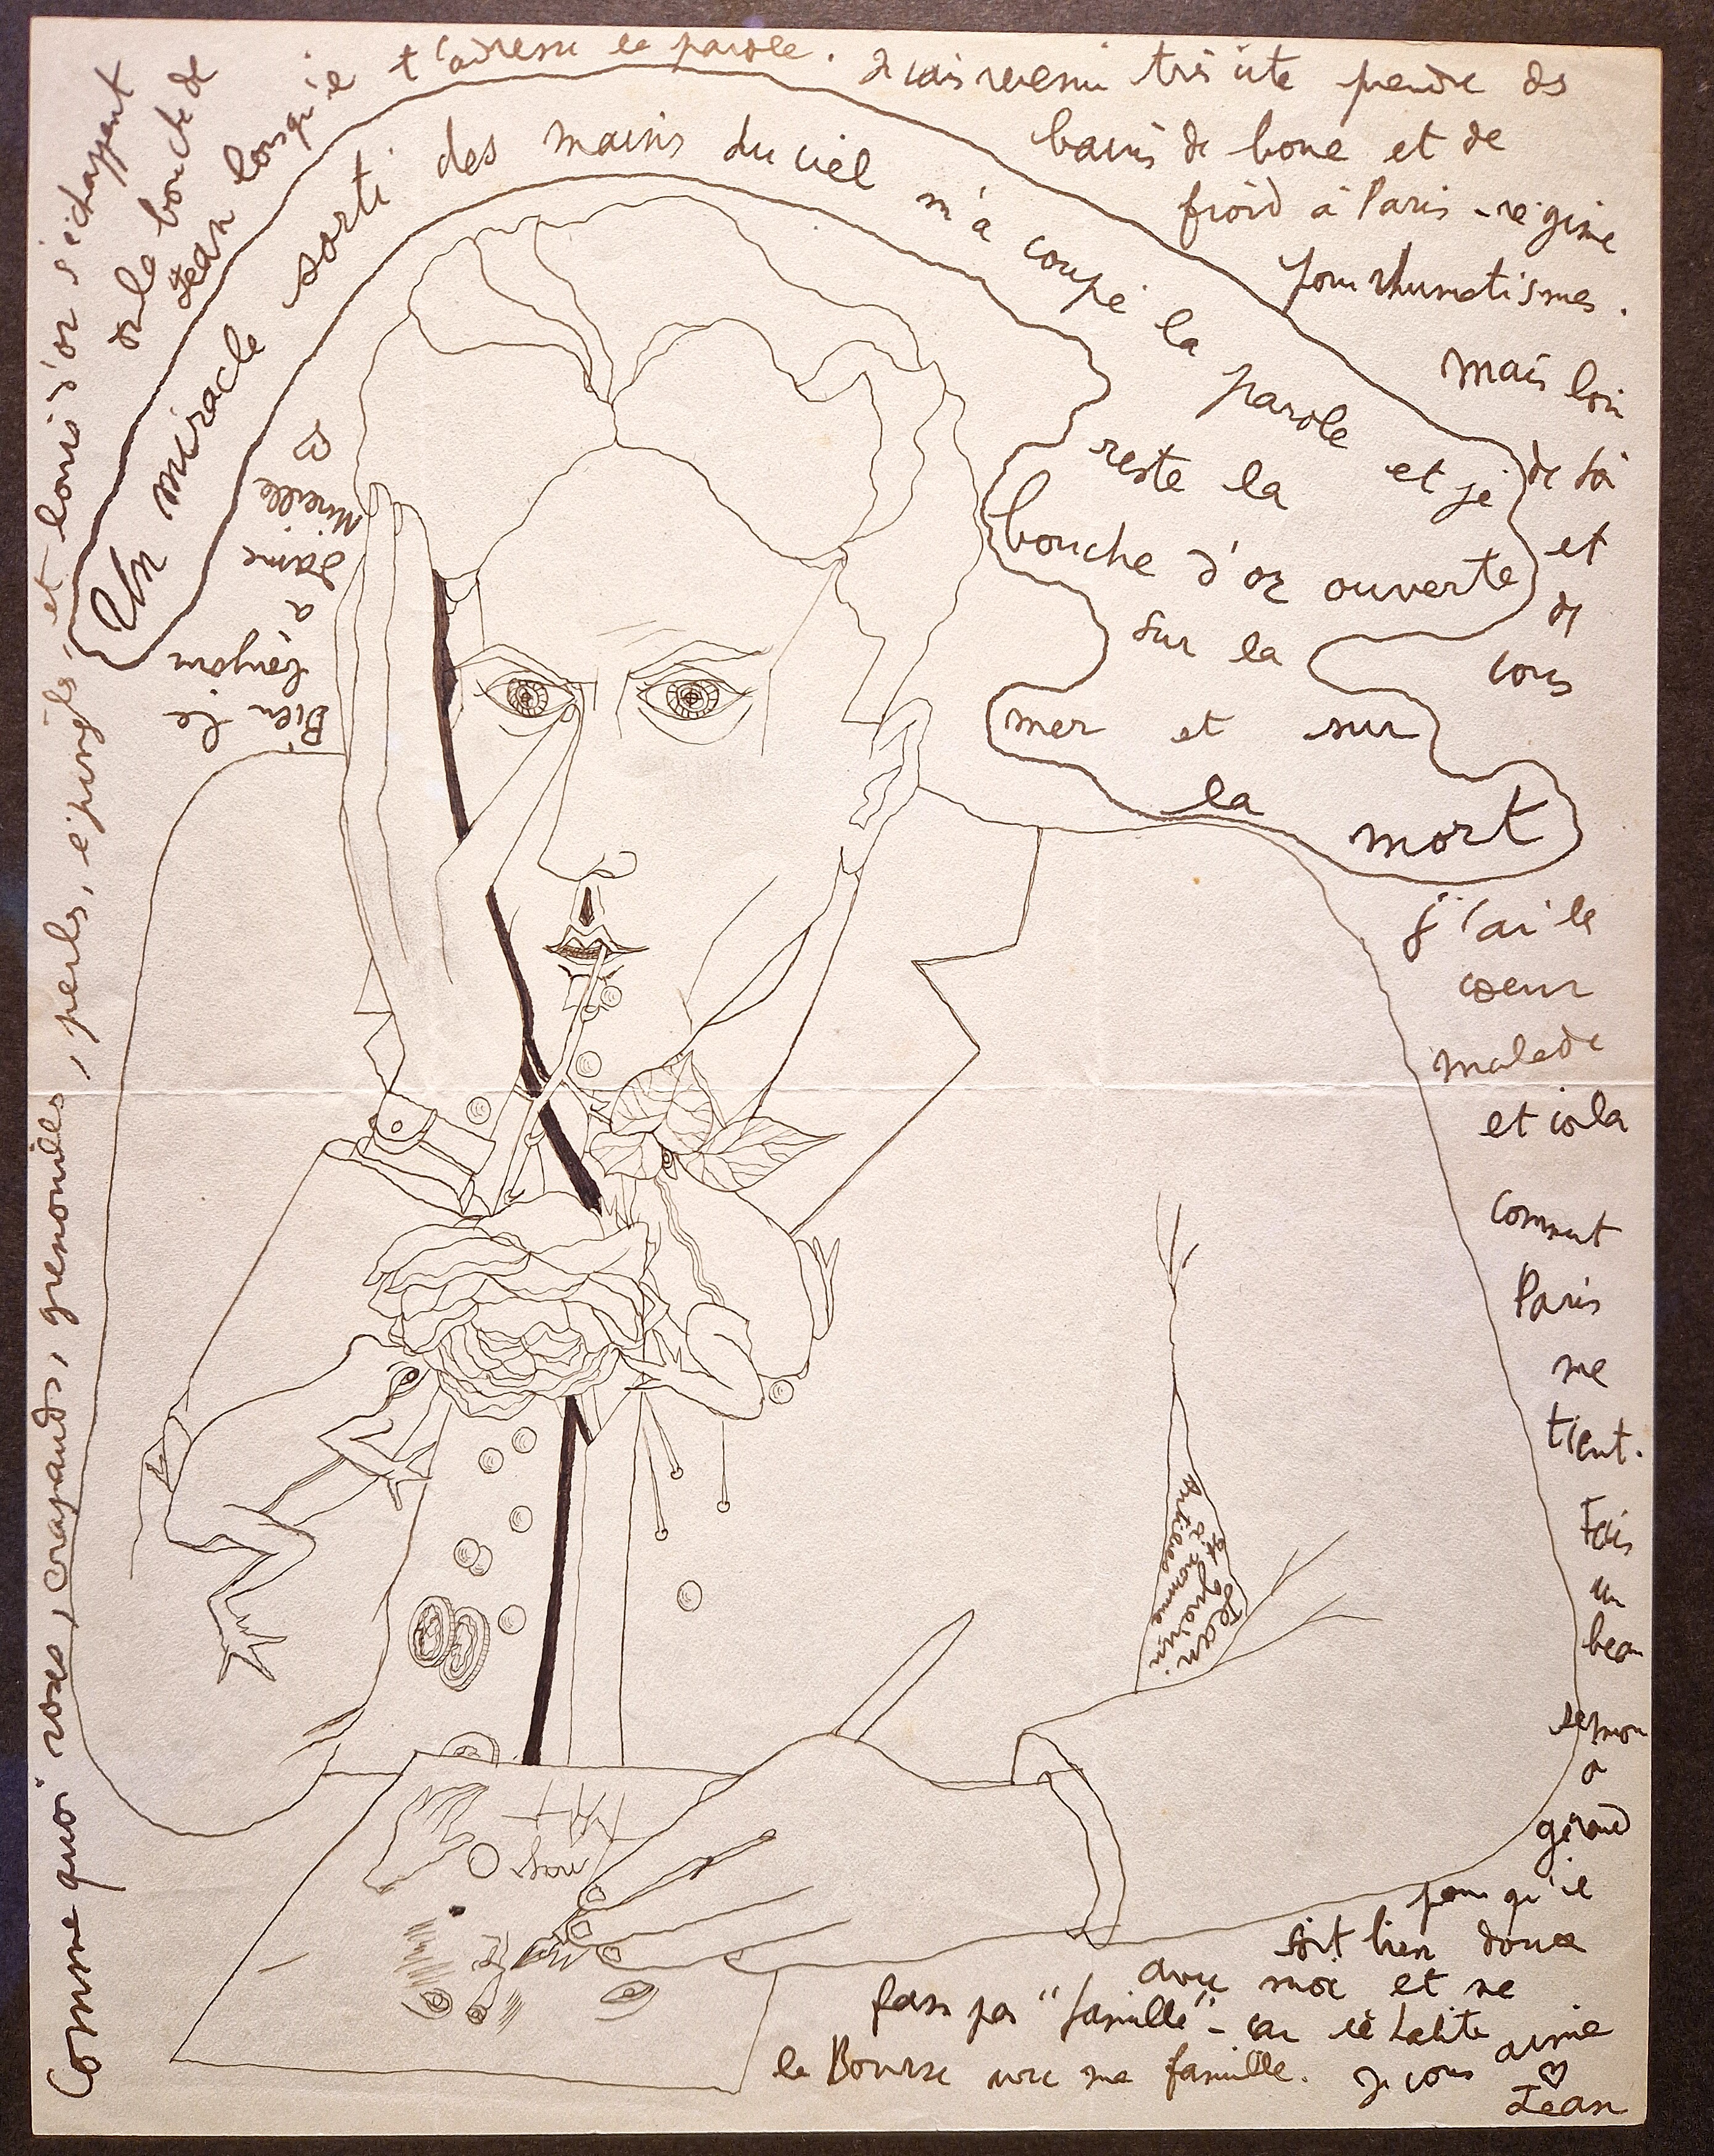 Comme quoi roses, crapauds, grenouilles, perles, épingles, et louis d'or s'échappent
de la bouche de
Jean lorsqu'il t'adresse la parole.
Un miracle sorti des mains du ciel m'a coupé la parole et je
reste la
bouche d'or ouverte
sur la
mer et sur
la mort
très vite prendre des
bains de boue et de
froid à Paris - régime
pour rhumatismes.
mais loin
de toi
et
de
vous
j'ai le
cœur
malade
et voila
comment
Paris
me
tient.
Fais
un
beau
sermon
a
gérard
pour qu'il
soit bien doux
avec moi et ne
fasse pas "famille" - car
la Bourse avec ma famille. Je vous aime
Jean
Mireille
J'aime
a
Bien le
Jean
et
Antilles